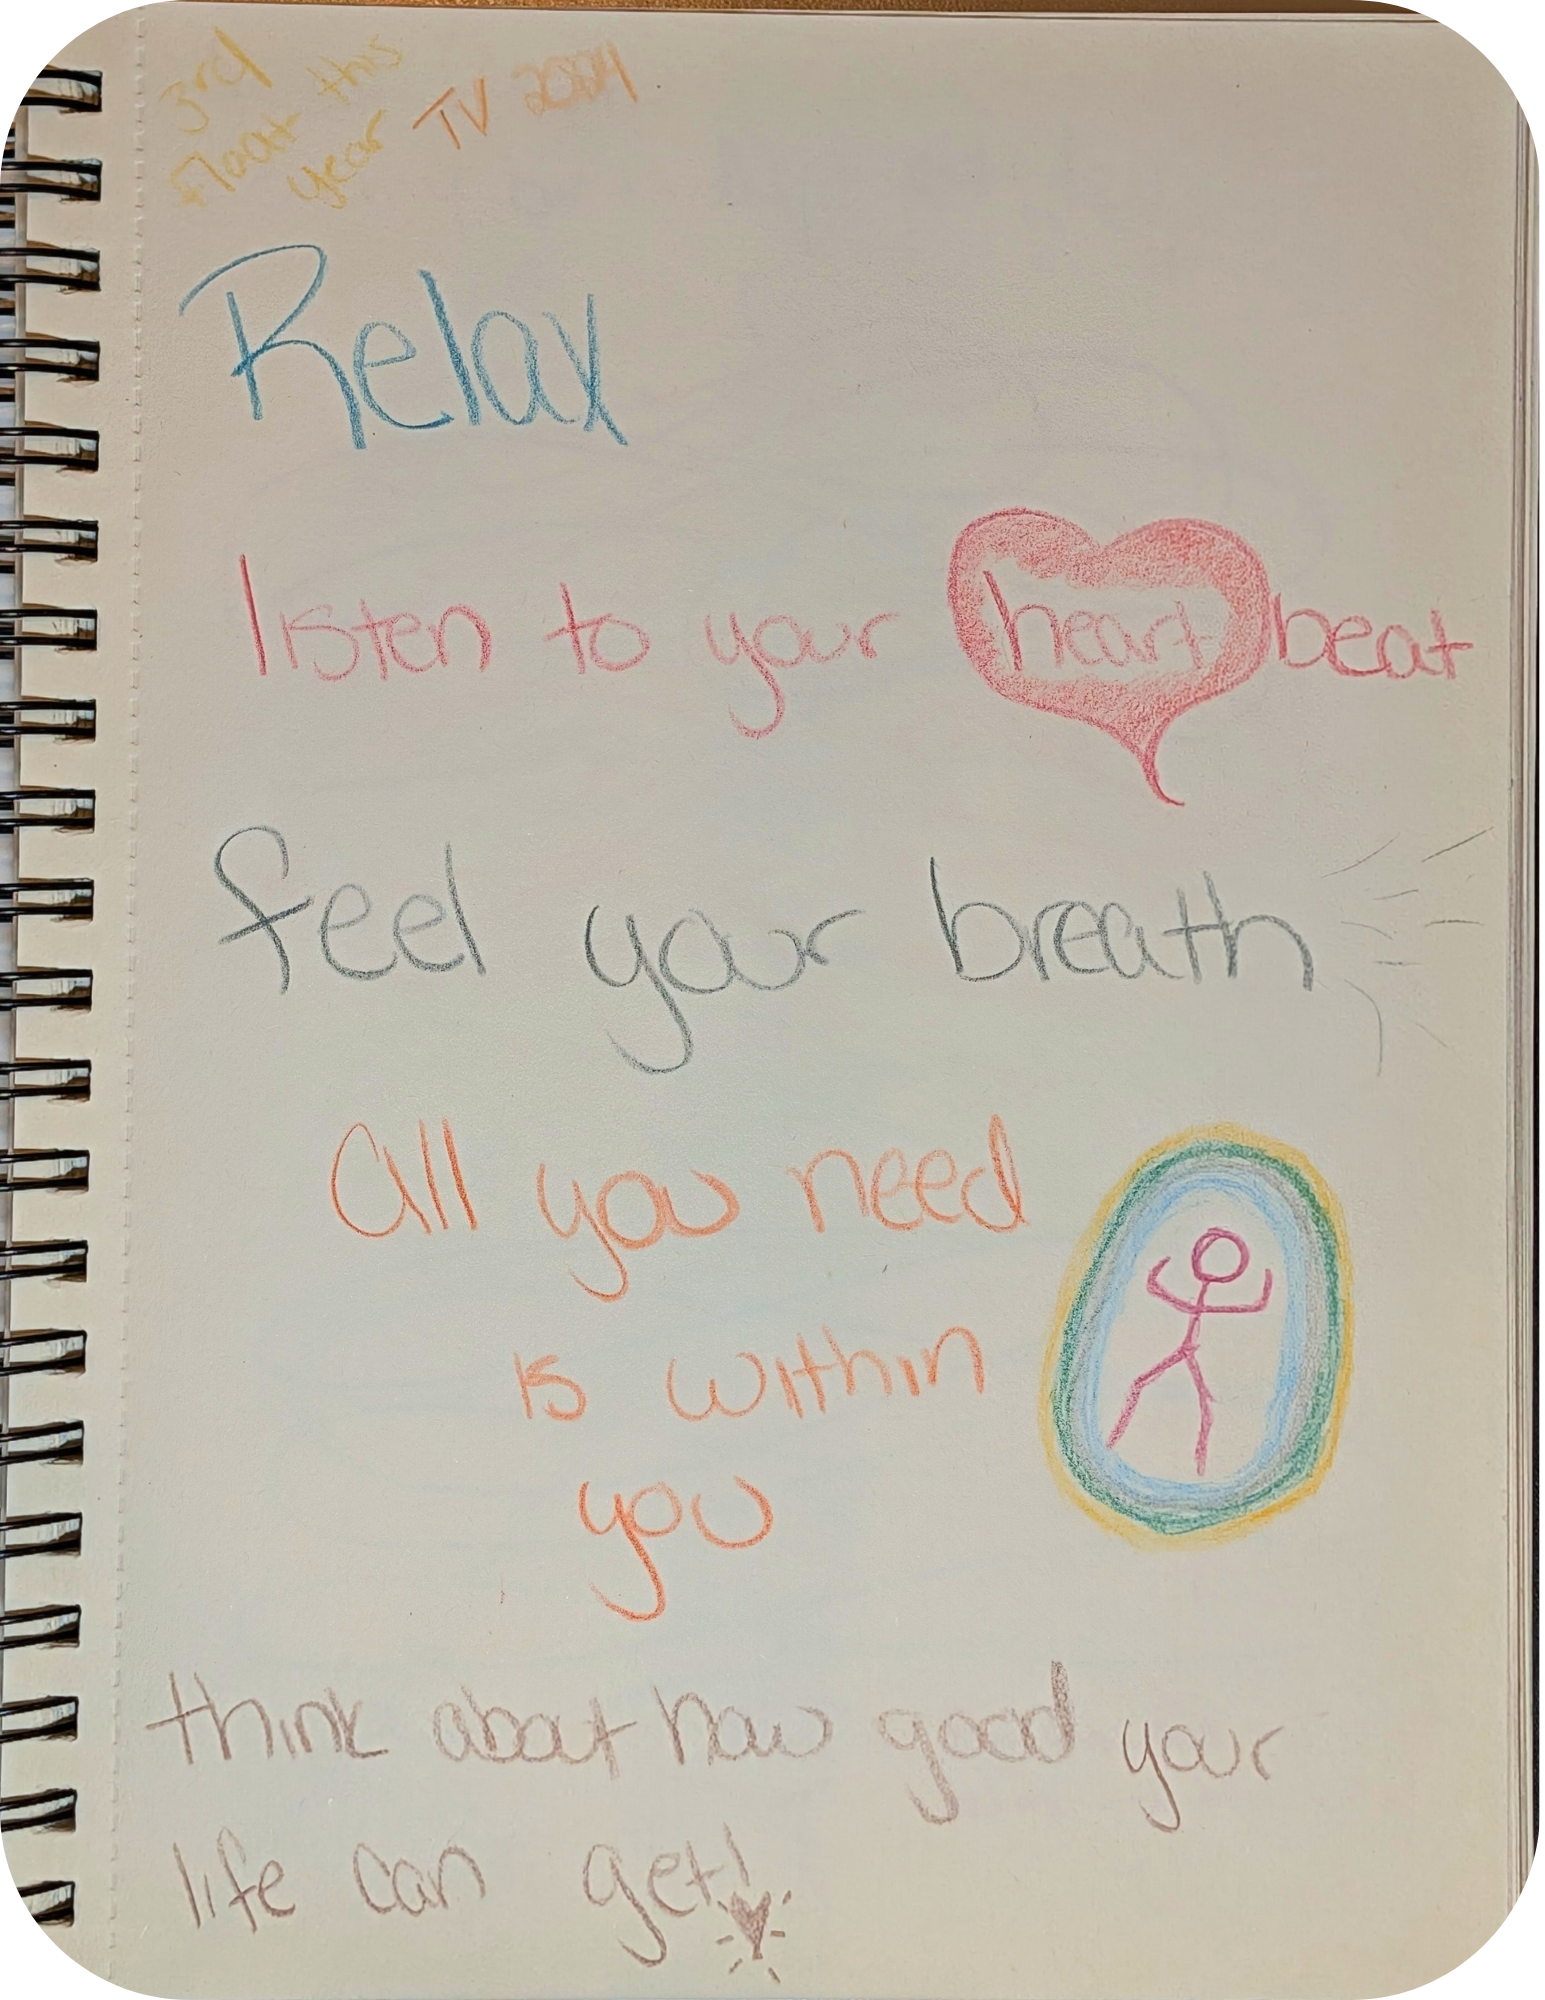 3rd
Float this
year
TV 2024
Relax
listen to your heart beat
feel your breath
all you need
is within
you
think about how good your
life can get!